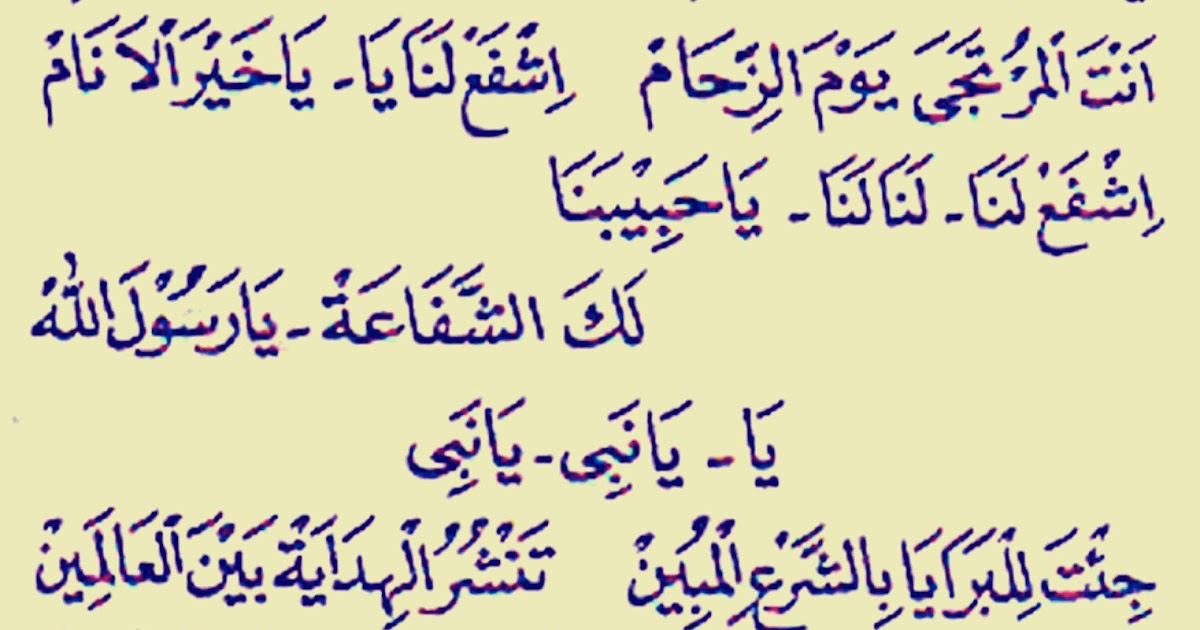 اَنْتَ الْمُرْتَجَى يَوْمَ الزِّحَامْ اِشْفَعْ لَنَا يَا - يَا خَيْرَ اْلاَنَامْ
اِشْفَعْ لَنَا - لَنَا لَنَا - يَا حَبِيْبَنَا
لَكَ الشَّفَاعَةْ - يَا رَسُوْلَ اللهْ
يَا - يَا نَبِى - يَا نَبِى
جِئْتَ لِلْبَرَايَا بِالشَّرْعِ الْمُبِيَنْ تَنْشُرُ الْهِدَايَةْ بَيْنَ الْعَالَمِيَنْ